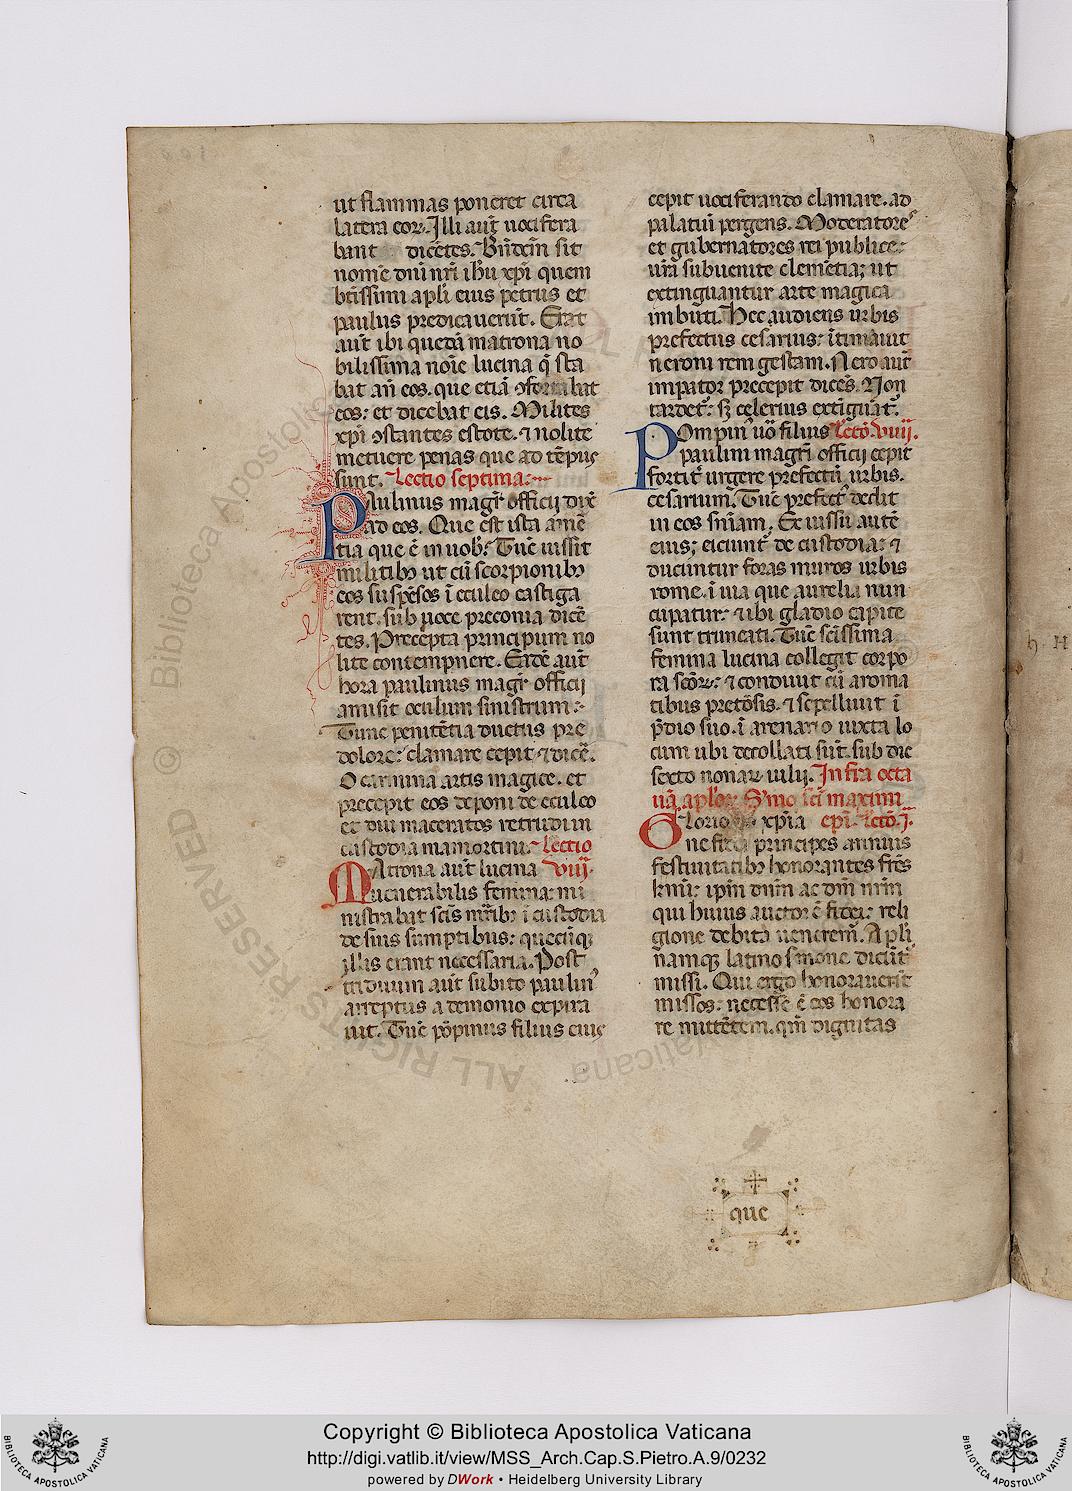 ut flammas poneret circa
latera eoꝝ. Illi aut̄ uocifera
bant dicētes. Bn̄dictū sit
nomē dnī nr̄i ih̄u xp̄i quem
bt̄issimi apl̄i eius petrus et
paulus predicauerūt. Erat
aut̄ ibi quedā matrona no
bilissima noīe lucina q̄ sta
bat an̄ eos. que etiā ꝯfortabat
eos: et dicebat eis. Milites
xp̄i ꝯstantes estote. ⁊ nolite
metuere penas que ad tēpus
sunt. Lectio septima:
PAulinus magr̄ officij dix̄
ad eos. Que est ista amē
tia que ē in uob̄. Tūc iussit
militibꝫ ut cū scorpionibꝫ
eos suspēsos ī eculeo castiga
rent. sub uoce preconia dicē
tes. Precepta principum no
lite contempnere. Eadē aut̄
hora paulinus magr̄ officij
amisit oculum sinistrum:
Tunc penitētia ductus pre
dolore: clamare cepit ⁊ dicē.
O carmina artis magice. et
precepit eos deponi de eculeo
et diu maceratos retrudi in
custodia mamortini. Lectio
MAtrona aut̄ lucina viij.
uenerabilis femina: mi
nistrabat scīs mr̄ibꝫ ī custodia
de suis sumptibus: quecūqꝫ
illis erant necessaria. Post
triduum aut̄ subito paulin᾿
arreptus a demonio expira
uit. Tūc pōpinus filius eius
cepit uociferando clamare. ad
palatiū pergens. Moderatores
et gubernatores rei publice:
ur̄a subuenite clemētia; ut
extinguantur arte magica
imbuti. Hec audiens urbis
prefectus cesarius: ītimauit
neroni rem gestam. Nero aut̄
imꝑator precepit dicēs. Non
tardet᾿: sꝫ celerius extīguāt᾿.
POmpin᾿ uō filius Lectō. viiij.
paulini magr̄i officij cepit
fortit᾿ urgere prefectū urbis.
cesarium. Tūc prefect᾿ dedit
in eos sn̄iam. Ex iussu autē
eius; eiciunt᾿ de custodia: ⁊
ducuntur foras muros urbis
rome. ī uia que aurelia nun
cupatur: ⁊ ibi gladio capite
sunt truncati. Tūc scīssima
femina lucina collegit corpo
ra scōꝝ: ⁊ condiuit cū aroma
tibus pretōsis. ⁊ sepelliuit ī
p̄dio suo. ī arenario iuxta lo
cum ubi decollati sūt. sub die
sexto nonaꝝ iulij. Infra octa
uā aplōꝝ. S᾿mo scī maximi
GLorio xp̄ia epī. Lectō. j.
ne fidei principes annuis
festiuitatibꝫ honorantes frēs
kmī: ip̄m dn̄m ac dm̄ nr̄m
qui huius auctor ē fidei: reli
gione debita ueneremᷣ. Apl̄i
namqꝫ latino s᾿mone dicūt᾿
missi. Qui ergo honorauerit
missos: necesse ē eos honora
re mittētem. qm̄ dignitas
que
© Biblioteca Apostolica Vaticana
ALL RIGHTS RESERVED
Copyright © Biblioteca Apostolica Vaticana
http://digi.vatlib.it/view/MSS_Arch.Cap.S.Pietro.A.9/0232
powered by DWork • Heidelberg University Library
BIBLIOTECA APOSTOLICA VATICANA
BIBLIOTECA APOSTOLICA VATICANA